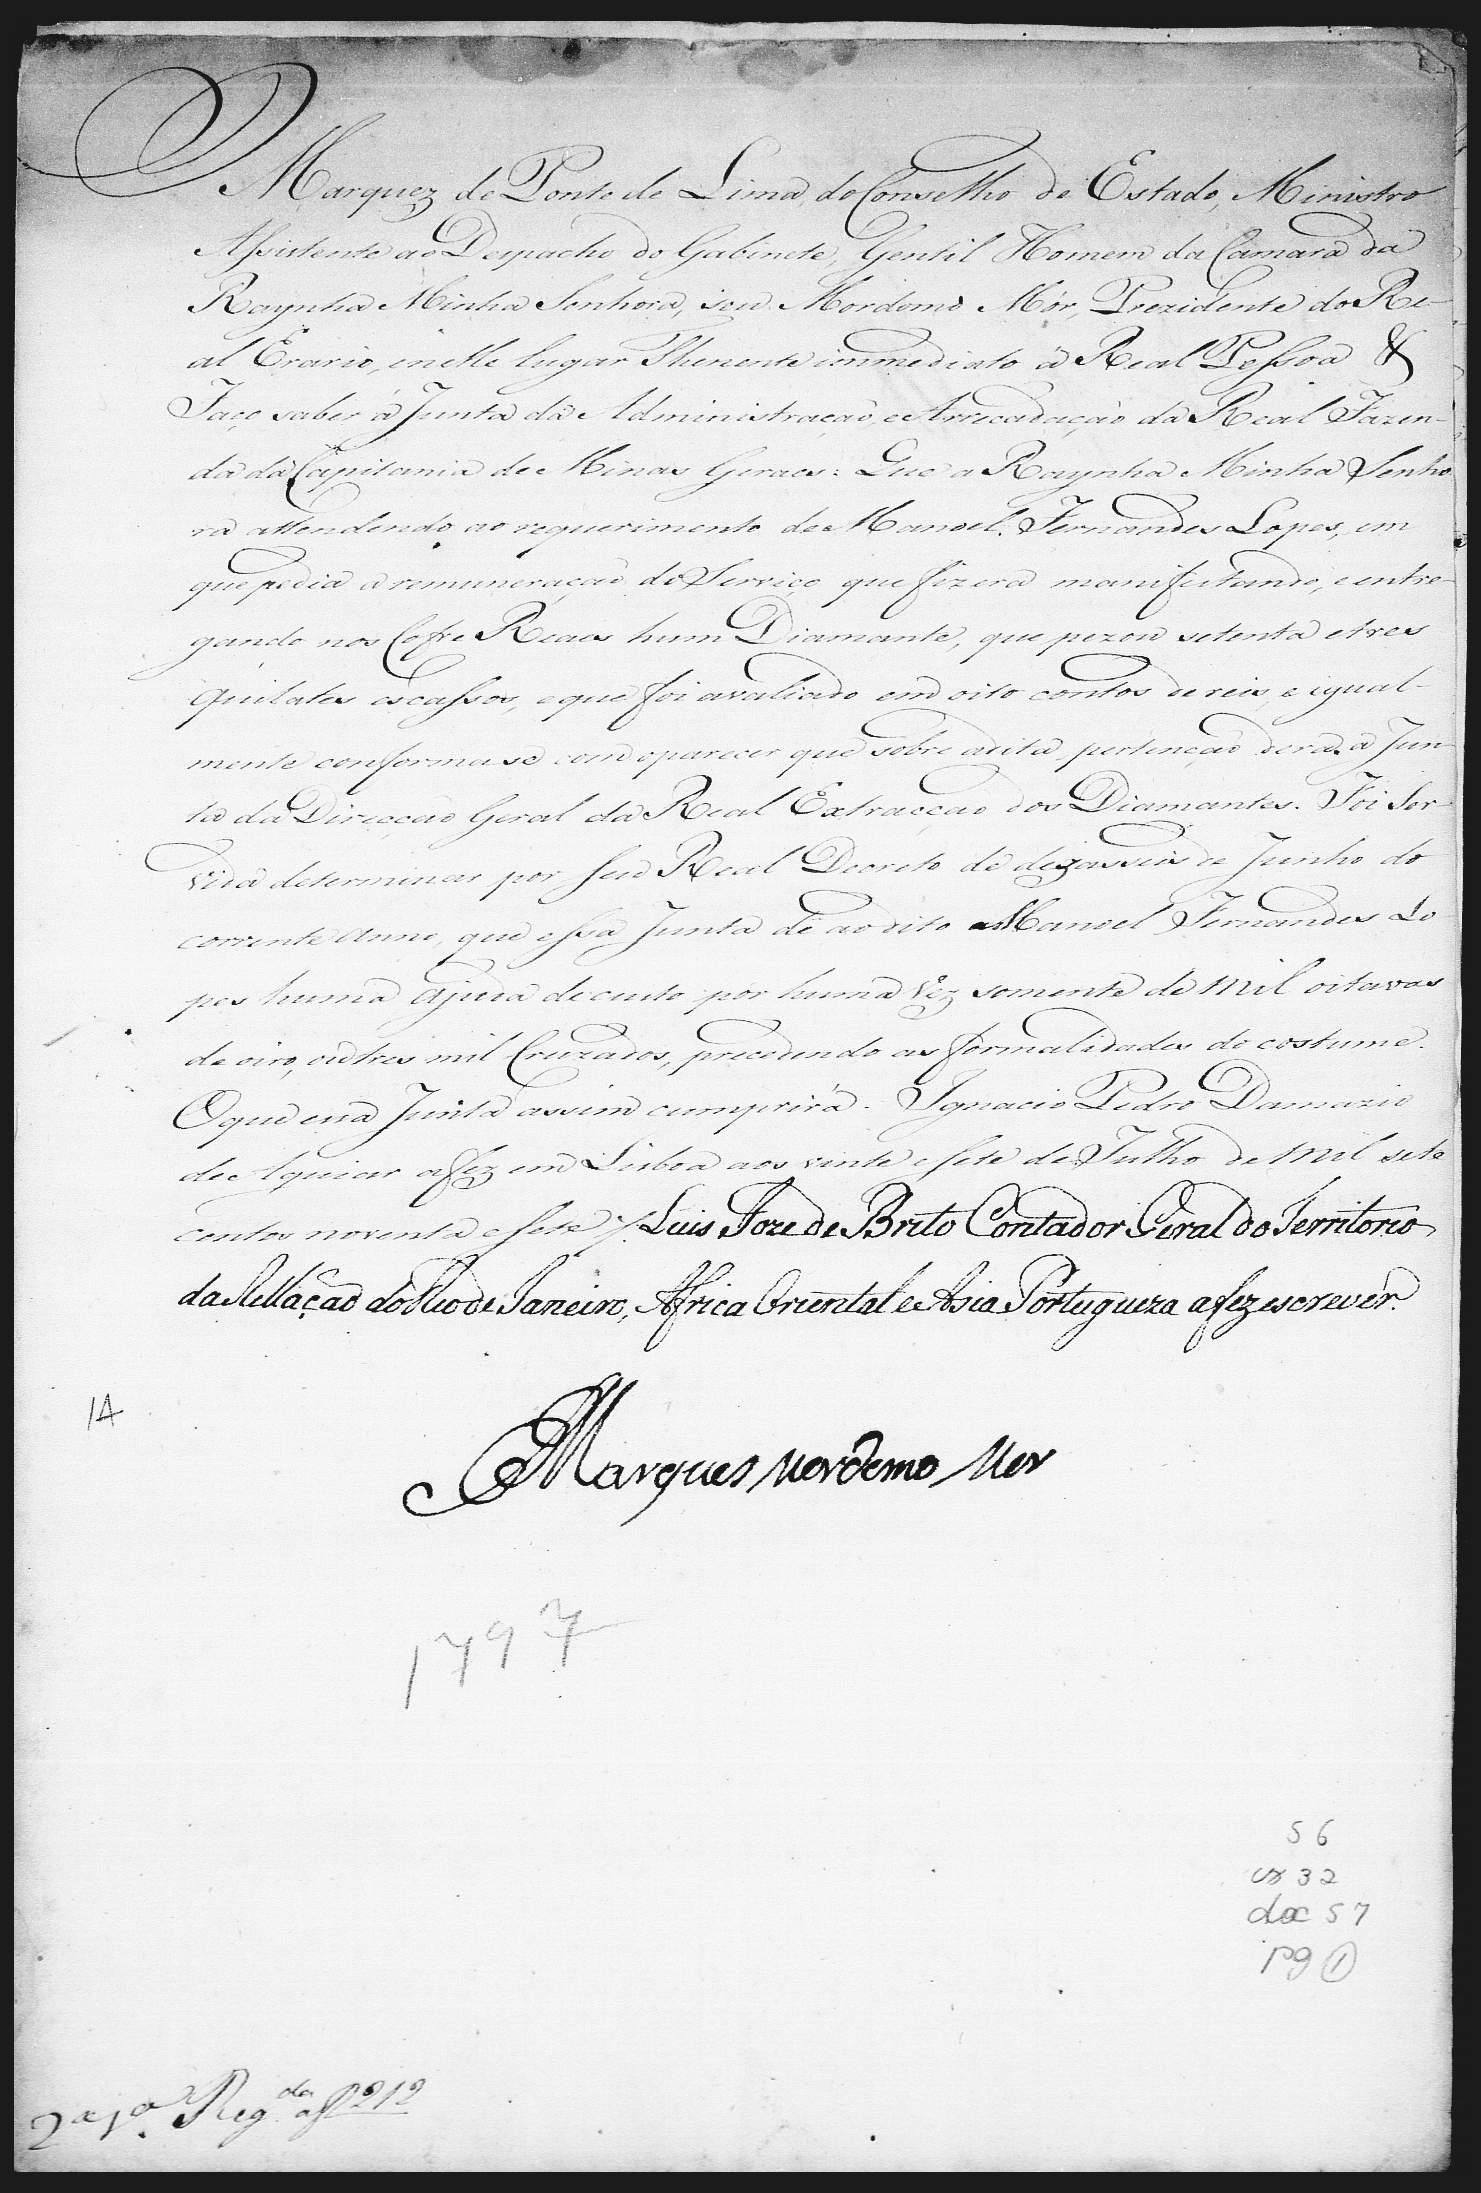 O Marquez de Ponte de Lima, do Conselho de Estado, Ministro
Assistente ao Despacho do Gabinete, Gentil Homem da Camara da
Raynha Minha Senhora, seu Mordomo Mór, Prezidente do Re-
al Erario, enelle lugar Thenente immediato á Real Pessoa &
Faço saber á Junta da Administração, e Arrecadação da Real Fazen-
da da Capitania de Minas Geraes: Que a Raynha Minha Senho-
ra attendendo ao requerimento de Manoel Fernandes Lopes, em
que pedia a remuneração do Serviço que fizera manifestando, e entre-
gando nos Cofre Reaes hum Diamante, que pezou setenta etres
quilates escassos, e que foi avaliado em oito contos de reis, e igual-
mente conformase com oparecer que sobre adita pertenção dera a Jun-
ta da Direcção Geral da Real Extracção dos Diamantes. Foi Ser-
vida determinar por Seu Real Decreto de dezasseis de Junho do
corrente Anno, que essa Junta dê ao dito Manoel Fernandes Lo
pes huma Ajuda decusto por huma Vêz somente de Mil oitavas
de oiro, outres mil Cruzados, precedendo as formalidades do costume.
Oque essa Junta assim cumprirá. Ignacio Pedro Damazio
de Aguiar afez em Lisboa aos vinte e sete de Julho de Mil sete
centos noventa e sete /. Luis Joze de Brito Contador Geral do Territorio
da Rellação do Rio de Janeiro, Africa Oriental e Asia Portugueza afez escrever.
14
Marques Mordomo Mor
1797
56
cx 32
doc 57
pg 1
2ª 1ª Regda af 212